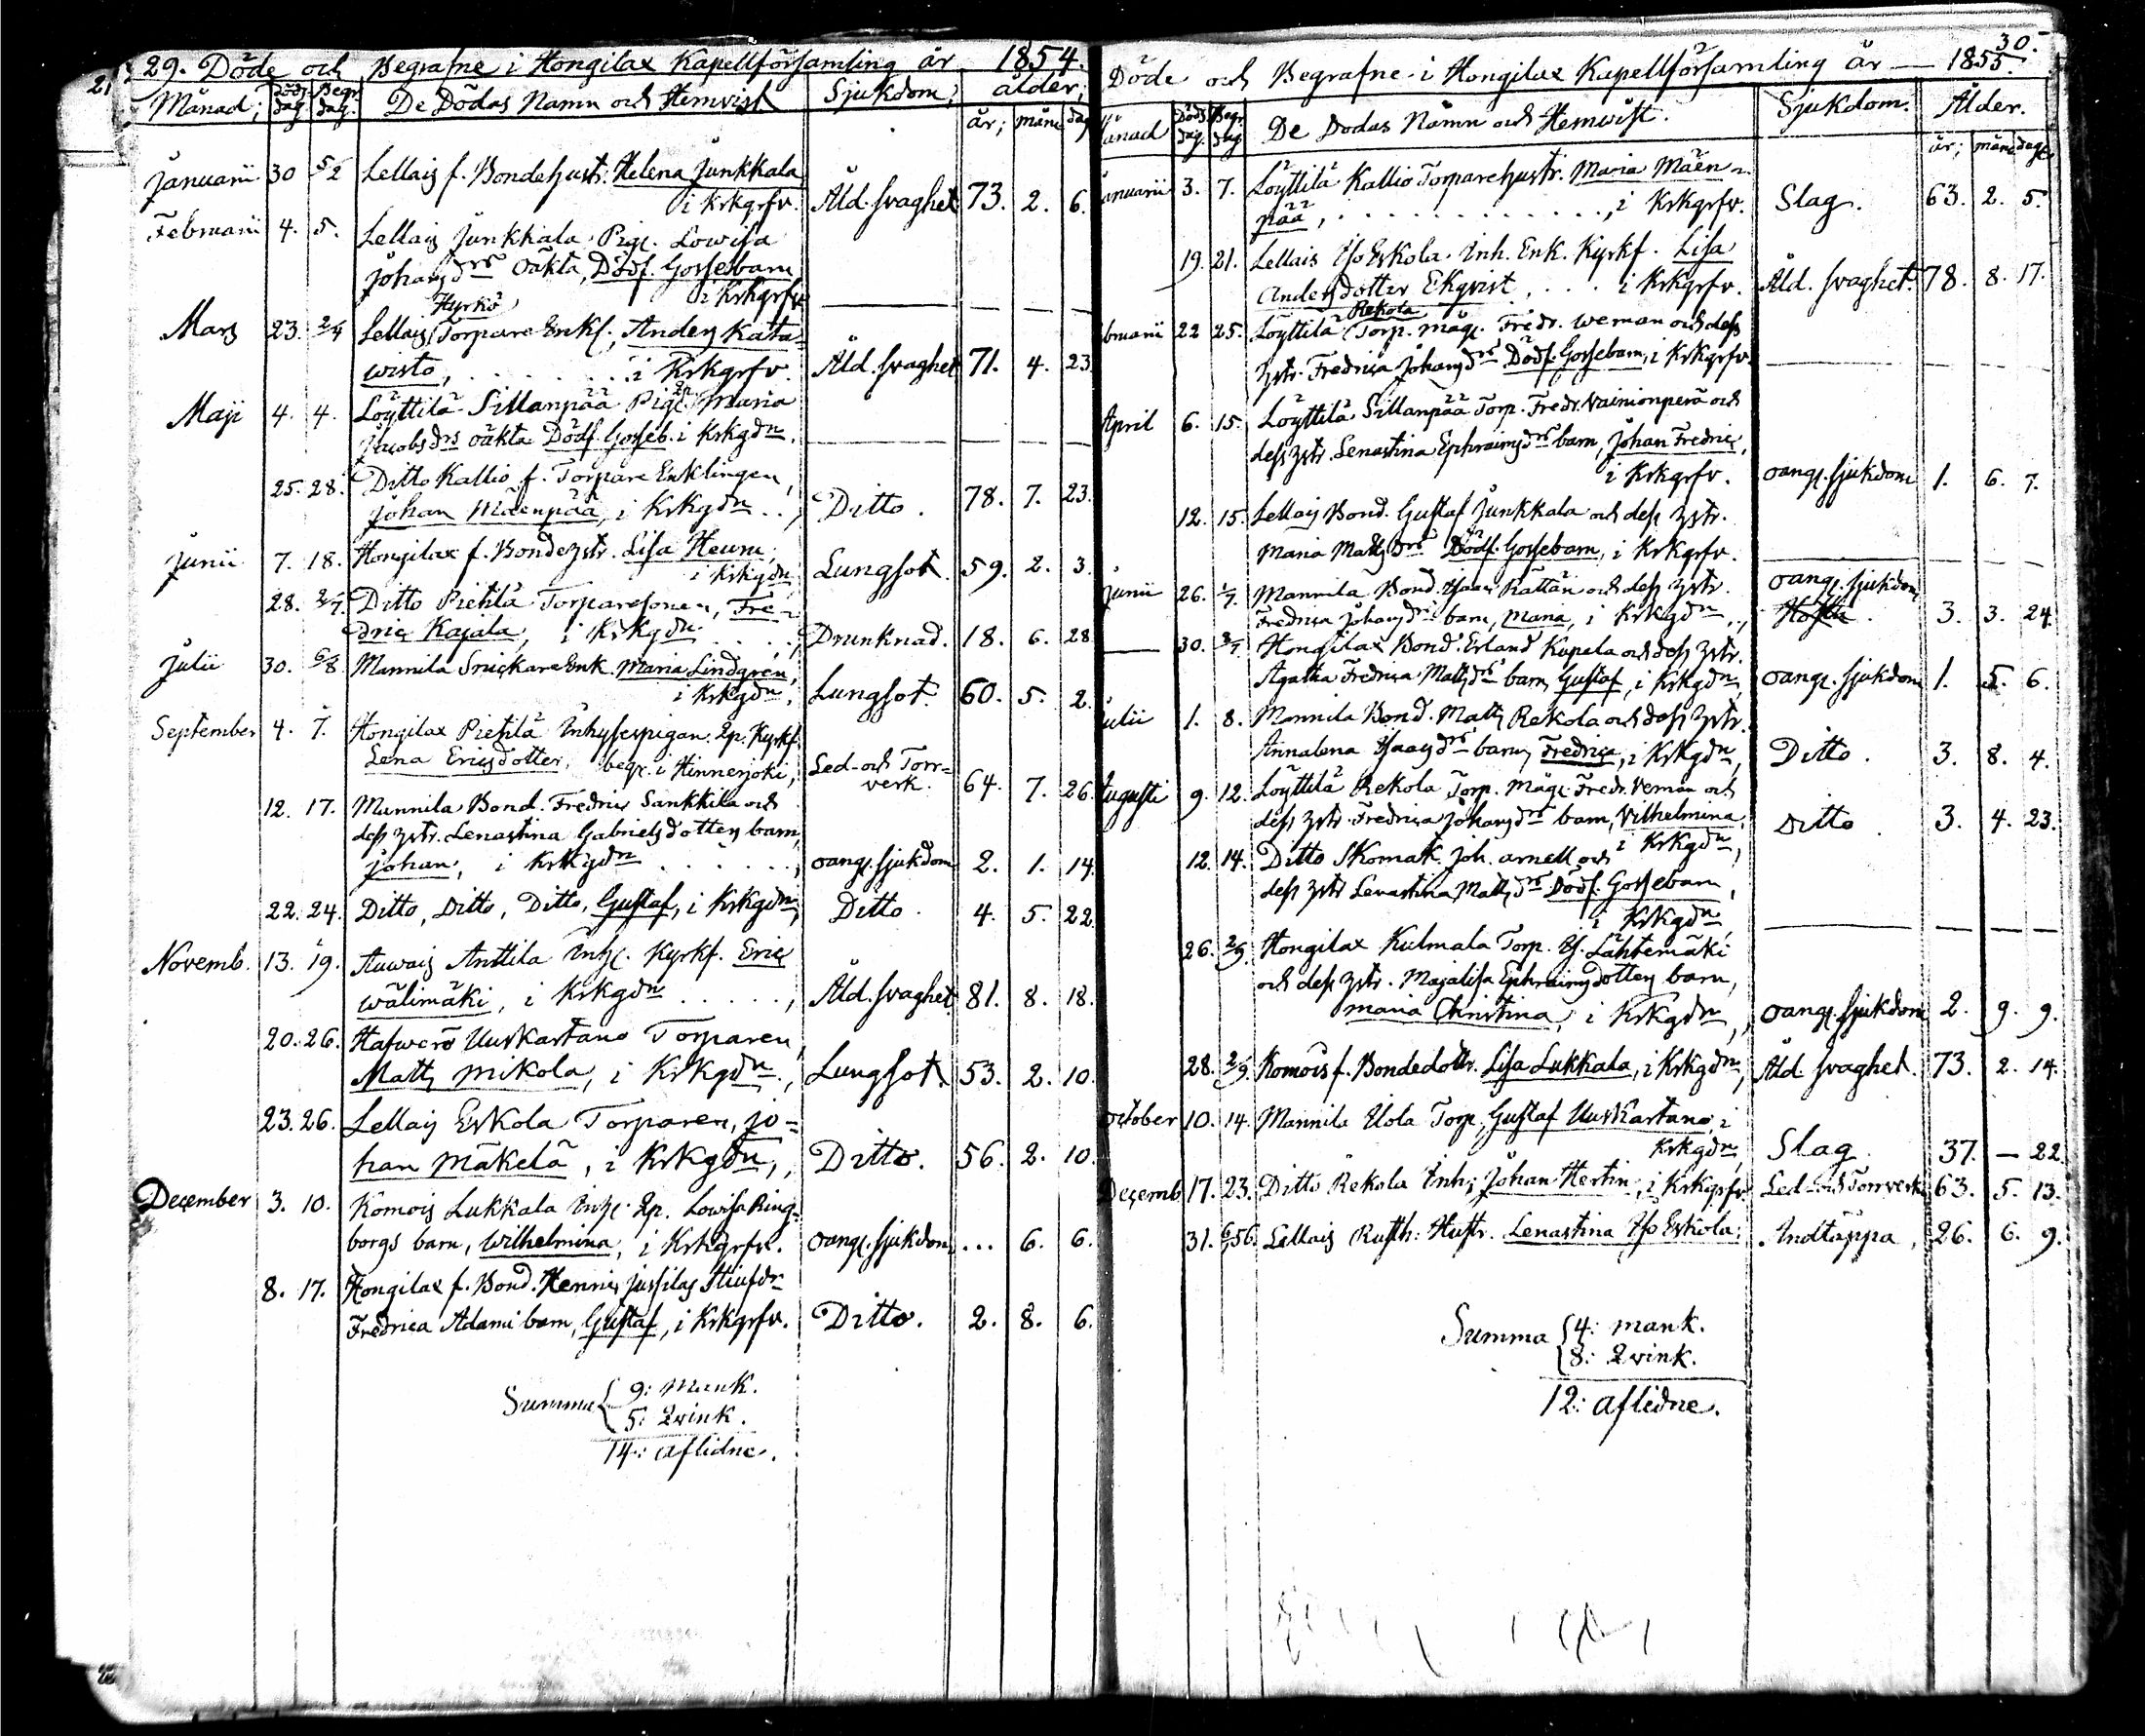 29. Döde och Begrafne i Hongilax Kapellförsamling år 1854.
Månad; Döds dag Begr. dag. De Dödas Namn och Hemvist Sjukdom; ålder;
år; mån: dag
Januarii 30 5/2 Lellais f. Bondehustr. Helena Junkkala
i Krkgrfv. Åld. svaghet 73. 2. 6.
Februarii 4. 5. Lellais Junkkala Pig. Lowisa
Johansdrs oäkta, Dödf. Gossebarn
i Krkgrfv
Hyrkö
Mars 23. 2/4 Lellais Torpare Enkl. Anders Kata=
wisto, . . . . . . . i Krkgrfv. Åld. svaghet 71. 4. 23
Maji 4. 4. Löyttilä Sillanpää Pig. Maria
Jacobsdrs oäkta Dödf. Gosseb. i Krkgdn.
25. 28. Ditto Kallio f. Torpare Enklingen,
Johan Mäenpää, i Krkgdn . . , Ditto. 78. 7. 23.
Junii 7. 18. Hongilax f. Bondehstr. Lisa Heuru,
i Krkgdn Lungsot. 59. 2. 3.
28. 2/7. Ditto Pietilä Torparesonen, Fre-
dric Kajala, i Krkgdn . . . , Drunknad. 18. 6. 28
Julii 30. 6/8 Mannila Snickare Enk. Maria Lindgren,
i Krkgdn. Lungsot. 60. 5. 2.
September 4. 7. Hongilax Pietilä Inhysespigan. Qp. Kyrkf.
Lena Ericsdotter, begr. i Hinnerjoki, Led- och Torr=
verk. 64. 7. 26.
12. 17. Mannila Bond. Fredric Sankkila och
dess hstr. Lenastina Gabrielsdotters barn,
Johan, i Krkgdn . . . . . . , oang. sjukdom 2. 1. 14.
22. 24. Ditto, Ditto, Ditto, Gustaf, i Krkgdn, Ditto. 4. 5. 22.
Novemb. 13. 19. Auwais Anttila Inh. Kyrkf. Eric
wälimäki, i Krkgdn . . . . . , Åld. svaghet 81. 8. 18.
20. 26. Hafwerö Uuskartano Torparen,
Matts Mikola, i Krkgdn., Lungsot. 53. 2. 10.
23. 26. Lellais Eskola Torparen, Jo=
han Mäkelä, i Krkgdn, Ditto. 56. 2. 10.
December 3. 10. Komois Lukkala Inh. Qp. Lowisa Ring=
borgs barn, Wilhelmina, i Krkgrfv. oang. sjukdom ... 6. 6.
8. 17. Hongilax f. Bond. Henric Jussilas Stiufdr
Fredrica Adami barn, Gustaf, i Krkgrfv. Ditto. 2. 8. 6.
Summa 9: Mank.
5: Qvink.
14: aflidne.
30.
Döde och Begrafne i Hongilax Kapellförsamling år 1855.
ånad Döds dag. Begr. dag. De Dödas Namn och Hemvist. Sjukdom. Ålder.
år; mån: dagar
anuarii 3. 7. Löyttilä Kallio Torparehustr. Maria Mäen-
pää, . . . . . . . . . . . . , i Krkgrfv. Slag. 63. 2. 5.
19. 21. Lellais Iso Eskola Inh. Enk. Kyrkf. Lisa
Andersdotter Ekqvist, . . . i Krkgrfv. Åld. svaghet. 78. 8. 17.
Rekola
bruarii 22 25. Löyttilä Torp. måg. Fredr. Weman och dess
hstr. Fredrica Johansdrs Dödf. Gossebarn, i Krkgrfv.
April 6. 15. Löyttilä Sillanpää Torp. Fredr. Vainionperä och
dess hstr. Lenastina Ephraimsdrs barn, Johan Fredric,
i Krkgrfv. oang. sjukdom 1. 6. 7.
12. 15. Lellais Bond. Gustaf Junkkala och dess hstr.
Maria Mattsdrs Dödf. Gossebarn, i Krkgrfv.
Junii 26. 1/7. Mannila Bond. Isaac Rättän och dess hstr. oang. sjukdom
Fredrica Johansdrs barn, Maria, i Krkgdn . . , Hosta. 3. 3. 24.
30. 3/7. Hongilax Bond. Erland Kupela och dess hstr.
Agatha Fredrica Mattsdrs barn, Gustaf, i Krkgdn, oang. sjukdom 1. 5. 6.
ulii 1. 8. Mannila Bond. Matts Rekola och dess hstr.
Annalena Isaacsdrs barn, Fredrica, i Krkgdn, Ditto. 3. 8. 4.
Augusti 9. 12. Löyttilä Rekola Torp. måg. Fredr. Veman och
dess hstr. Fredrica Johansdrs barn, Vilhelmina,
i Krkgdn, Ditto. 3. 4. 23.
12. 14. Ditto Skomak. Joh. Arnell och
dess hstr Lenastina Mattsdrs Dödf. Gossebarn,
i Krkgdn,
26. 2/9. Hongilax Kulmala Torp. Is. Lähtemäki
och dess hstr. Majalisa Ephraimsdotters barn,
Maria Christina, i Krkgdn, oang. sjukdom 2. 9. 9.
28. 2/9. Komois f. Bondedottr. Lisa Lukkala, i Krkgdn, Åld. svaghet. 73. 2. 14.
october 10. 14. Mannila Uola Torp. Gustaf Uuskartano, i
Krkgdn, Slag. 37. — 22.
Decemb. 17. 23. Ditto Rekola Inh; Johan Hertin, i Krkgrfv. Led- och Torrverk 63. 5. 13.
31. 6/1 56. Lellais Rusth: Hustr. Lenastina Iso Eskola, Andtäppa, 26. 6. 9.
Summa 4: mank.
8: Qvink.
12: aflidne.